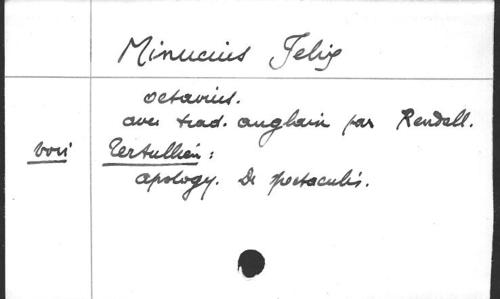 Minucius Felix
octavius.
avec trad. anglaise par Rendall.
voir Tertullien :
apology. De spectaculis.